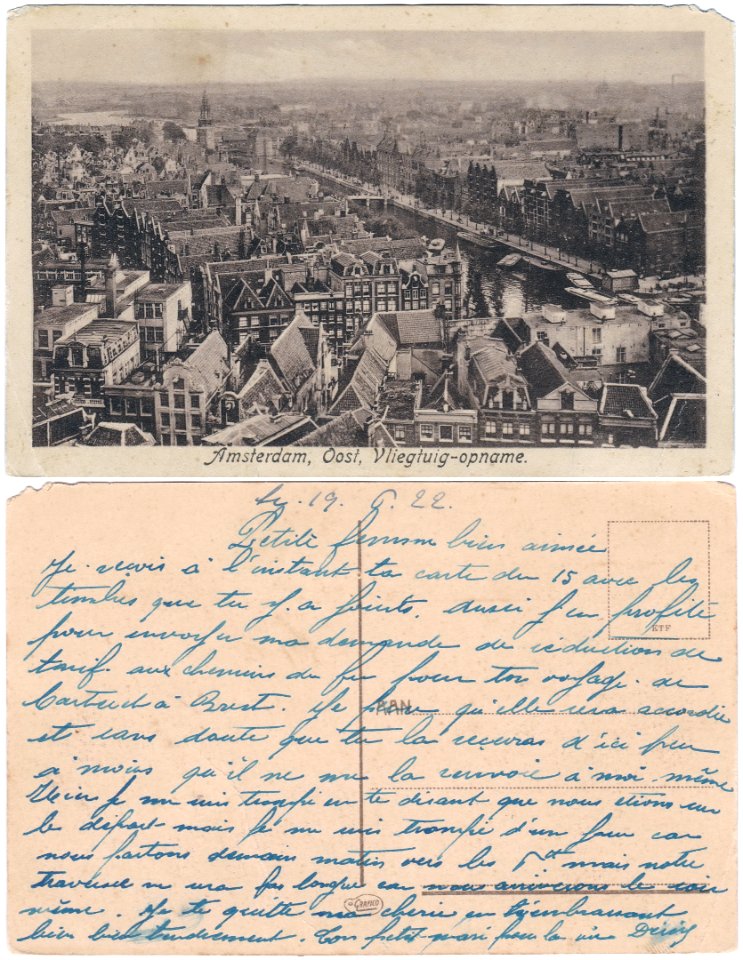 Amsterdam, Oost, Vliegtuig-opname.
19. 6. 22.
Petite femme bien aimée
Je reçois à l'instant ta carte du 15 avec les
timbres que tu y a joints. Aussi j'en profite
KTF
pour envoyer ma demande de réduction de
tarif aux chemins de fer pour ton voyage de
à Brest. Je qu'elle sera accordée
AAN
et sans doute que tu la recevras d'ici peu
à moins qu'il ne me la renvoie à moi même
Hier je me suis trompé en te disant que nous étions sur
le départ mais je me suis trompé d'un peu car
nous partons demain matin vers les mais notre
traversée ne sera pas longue car nous arriverons le soir
même. Je te quitte ma chérie en t'embrassant
GRAFICO
bien bien tendrement. Ton petit mari pour la vie